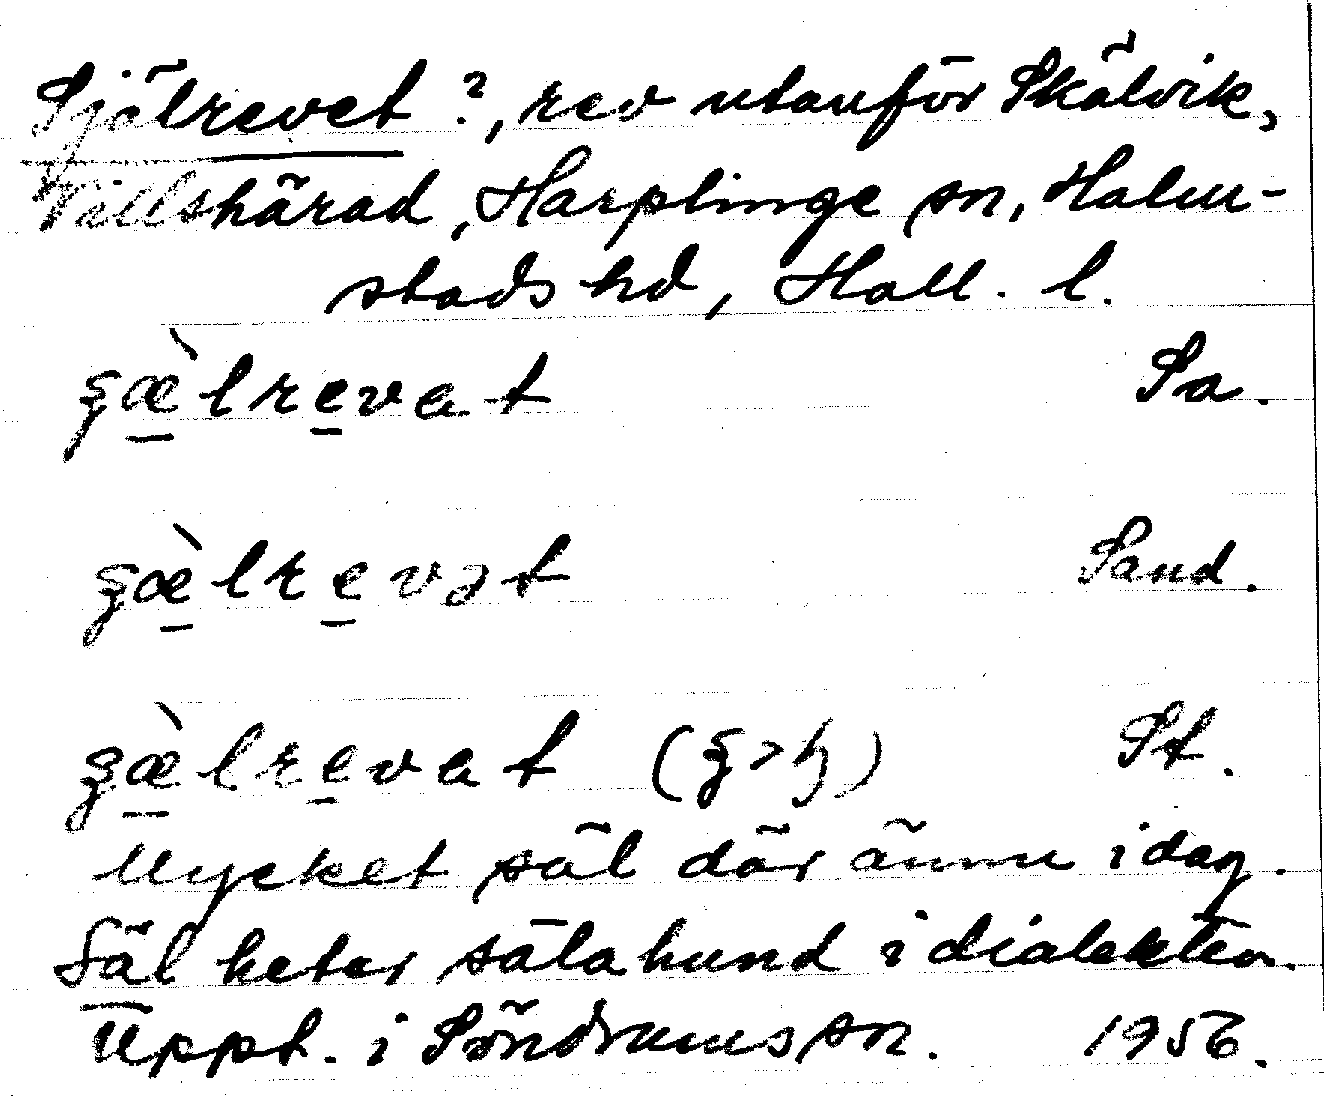 Själrevet?, rev utanför Skälvik,
Villshärad, Harplinge sn, Halm-
stads hd, Hall. l.
ʒæ̀lrevat Sa.
ʒæ̀lrevət Sand.
ʒæ̀lrevat (ʒ > ɧ) St.
Mycket säl där ännu idag.
Säl heter sälahund i dialekten.
Uppt. i Söndrums sn. 1956.